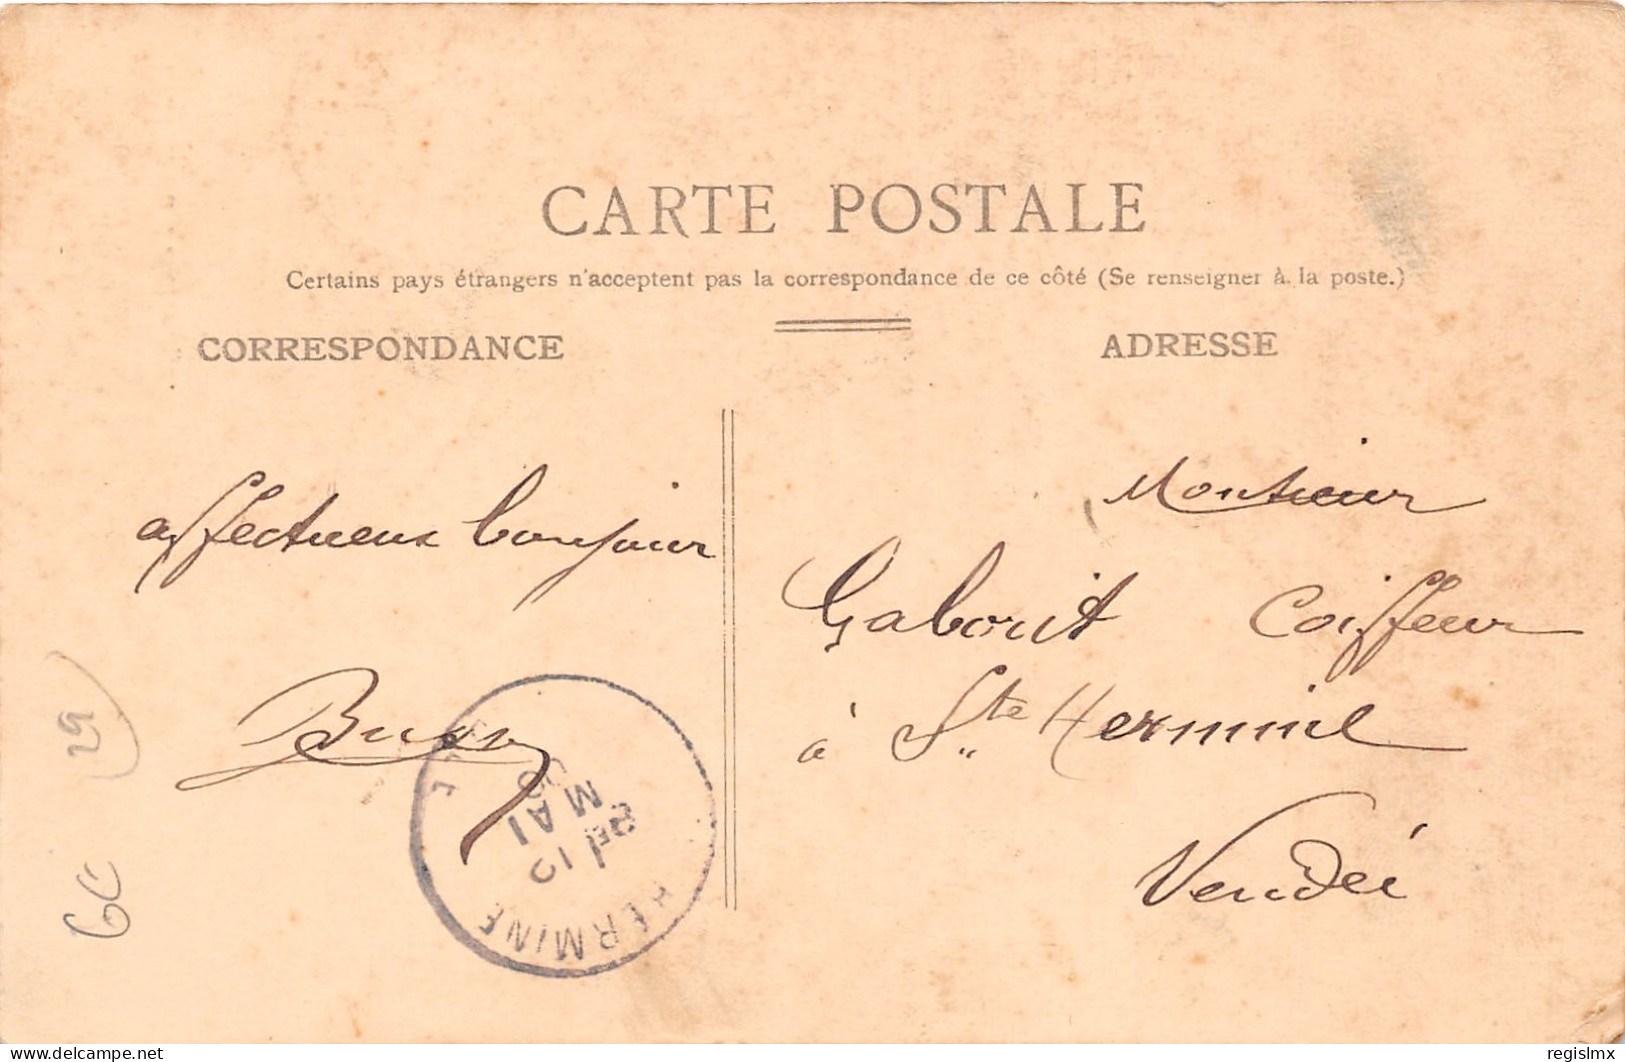 CARTE POSTALE
Certains pays étrangers n'acceptent pas la correspondance de ce côté (Se renseigner à la poste.)
CORRESPONDANCE
ADRESSE
affectueux bonjour
Monsieur
Gaborit Coiffeur
à Ste Hermine
Vendée
29
60
HERMINE
MAI
delcampe.net
regislmx